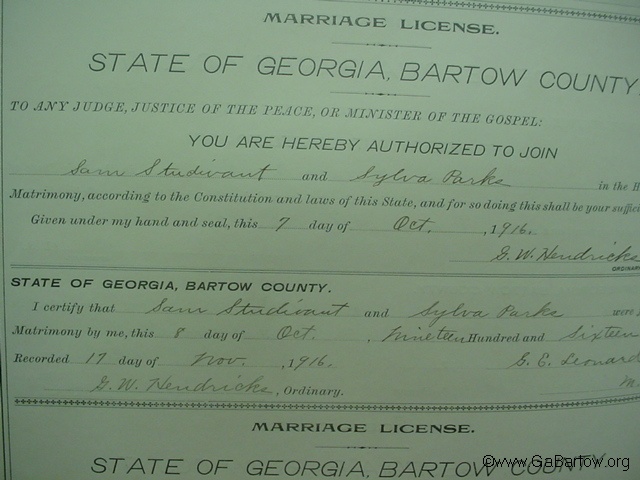 MARRIAGE LICENSE.
STATE OF GEORGIA, BARTOW COUNTY.
TO ANY JUDGE, JUSTICE OF THE PEACE, OR MINISTER OF THE GOSPEL:
YOU ARE HEREBY AUTHORIZED TO JOIN
Sam Studivant and Sylva Parks in the H
Matrimony, according to the Constitution and laws of this State, and for so doing this shall be your suffici
Given under my hand and seal, this 7 day of Oct. , 1916.
G. W. Hendricks
ORDINAR
STATE OF GEORGIA, BARTOW COUNTY.
I certify that Sam Studivant and Sylva Parks were
Matrimony by me, this 8 day of Oct. , Nineteen Hundred and Sixteen
Recorded 17 day of Nov. , 1916. G. E. Leonard
G. W. Hendricks , Ordinary. M.
MARRIAGE LICENSE.
STATE OF GEORGIA, BARTOW COUNTY
©www.GaBartow.org